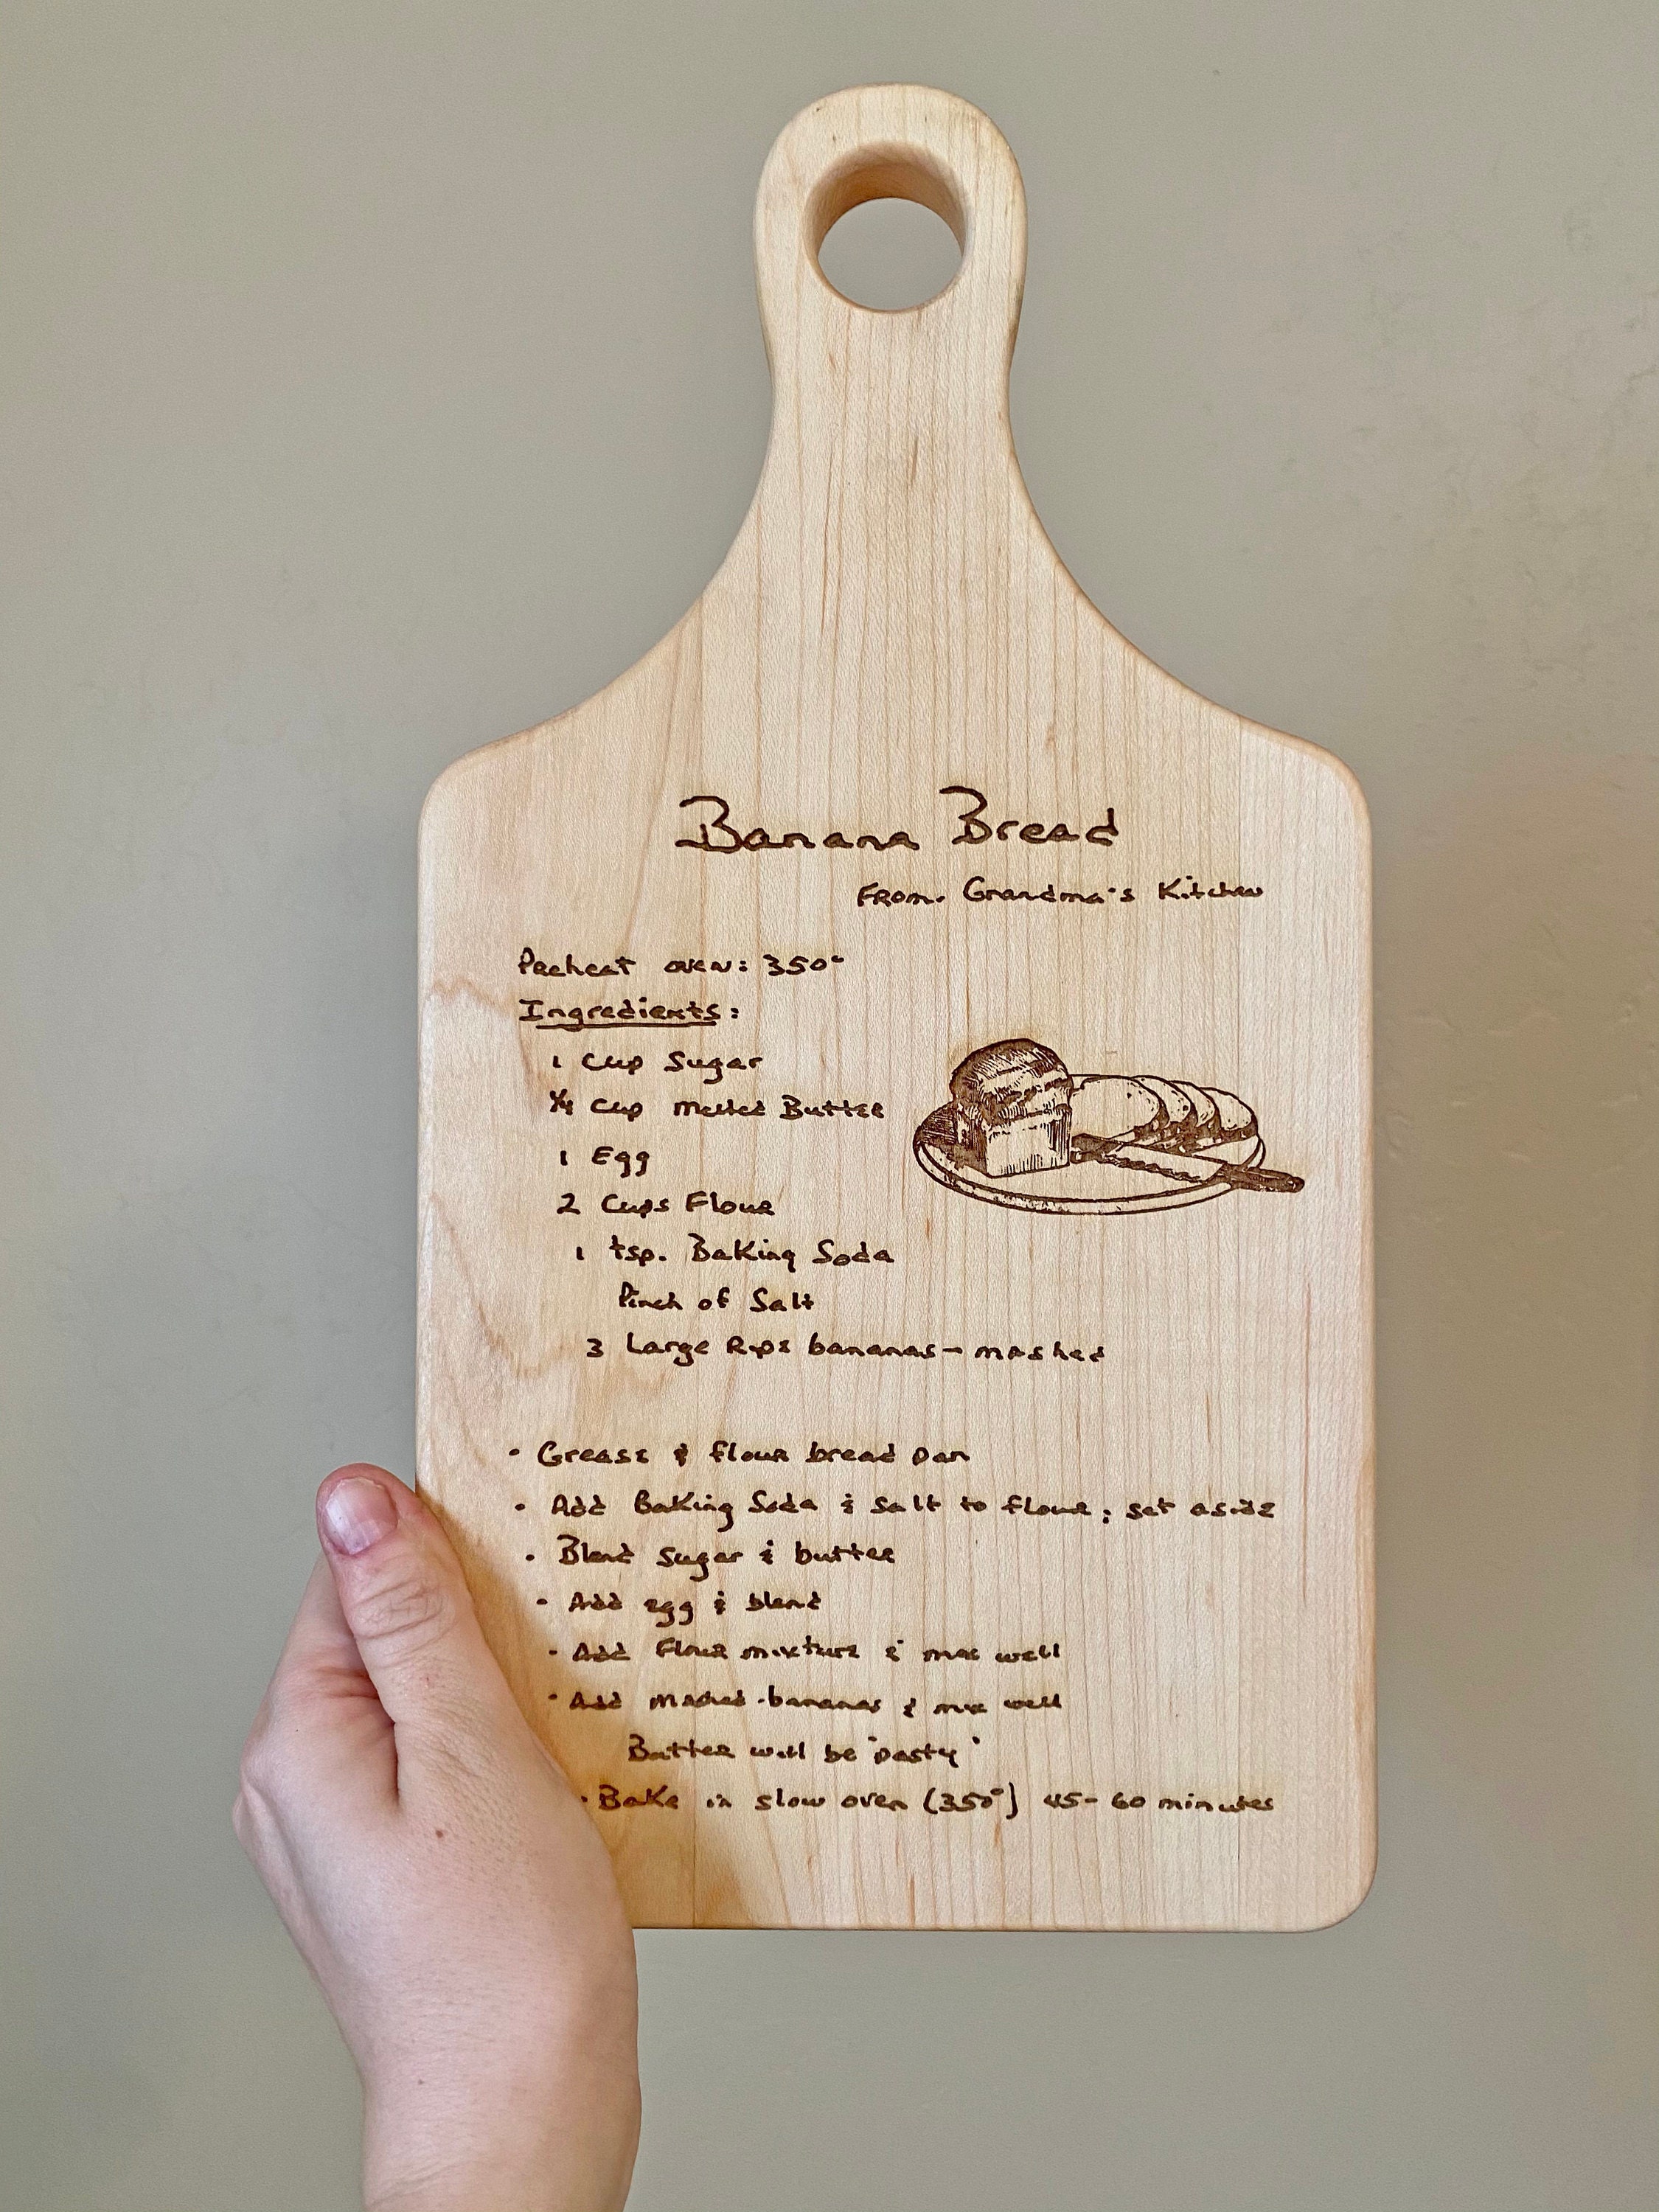 Banana Bread
From. Grandma's Kitchen
Preheat oven: 350°
Ingredients:
1 Cup Sugar
1/4 Cup melted Butter
1 Egg
2 Cups Flour
1 tsp. Baking Soda
Pinch of Salt
3 Large Ripe bananas - mashed
• Grease & flour bread pan
• Add Baking Soda & Salt to flour; set aside
• Blend sugar & butter
• Add egg & blend
• Add Flour mixture & mix well
• Add mashed bananas & mix well
Batter will be "pasty"
• Bake in slow oven (350°) 45-60 minutes